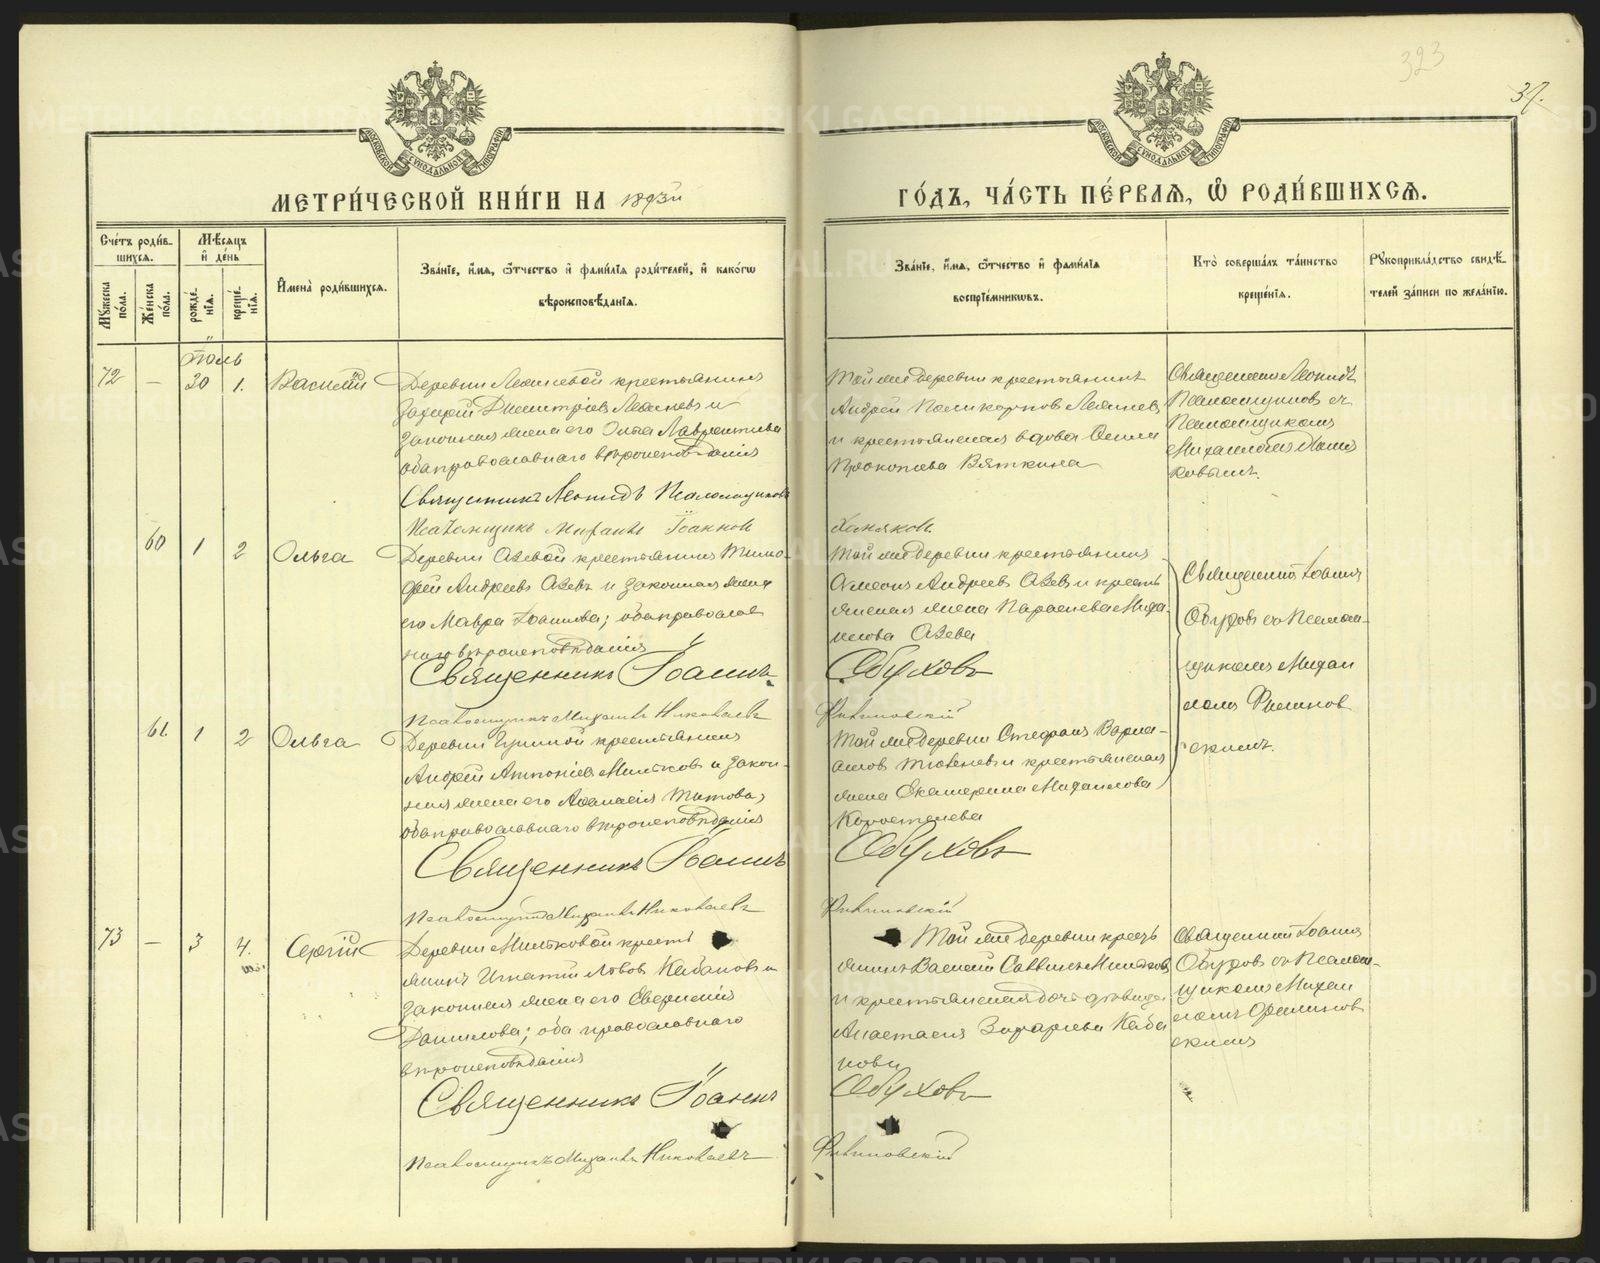 323
37.
МОСКОВСКОЙ СѴНОДАЛЬНОЙ ТИПОГРАФІИ
МОСКОВСКОЙ СѴНОДАЛЬНОЙ ТИПОГРАФІИ
МЕТРИ́ЧЕСКОЙ КНИ́ГИ НА 1893й
ГО́ДЪ, ЧА́СТЬ ПЕ́РВАЯ, Ѿ РОДИ́ВШИХСЯ.
Сче́тъ роди́вшихся.
Му́жеска по́ла.
Же́нска по́ла.
Мѣ́сяцъ и҆ де́нь
рожде́нїѧ.
креще́нїѧ.
И҆мена̀ роди́вшихся.
Зва́нїе, и҆́мя, ѻ҆́тчество и҆ фами́лїя роди́телей, и҆ како́гѡ
вѣроисповѣ́данїя.
Зва́нїе, и҆́мя, ѻ҆́тчество и҆ фами́лїя
воспрїе́мниковъ.
Кто̀ соверша́лъ та́инство
креще́нїя.
Рукоприкла́дство свидѣ́-
телей за́писи по жела́нїю.
Іюль
72 — 30 1. Василій
Деревни крестьянинъ
Захарій Димитріевъ и
законная жена его Ольга Лаврентьева
оба православнаго вѣроисповѣданія
Священникъ Леонидъ Псаломщиковъ
Псаломщикъ Михаилъ Іоанновъ
Той же деревни крестьянинъ
Андрей Поликарповъ
и крестьянская вдова
Прокопьева Вяткина
Хоняковъ.
Священникъ Леонидъ
Псаломщиковъ съ
Псаломщикомъ
Михаиломъ
60 1 2 Ольга
Деревни Азевой крестьянинъ Тимо-
фей Андреевъ Азевъ и законная жена
его Мавра; оба православ
наго вѣроисповѣданія
Священникъ Іоаннъ
Псаломщикъ Михаилъ Николаевъ
Той же деревни крестьянинъ
Андреевъ Азевъ и кресть
янская жена Параскева Михаи-
лова Азева
Обуховъ
Филиповскій
Священникъ Іоаннъ
Обуховъ съ Псалом-
щикомъ Михаи
ломъ Филипов
скимъ.
61. 1 2 Ольга
Деревни крестьянинъ
Андрей Антоніевъ и закон-
ная жена его Аѳанасія Титова;
оба православнаго вѣроисповѣданія
Священникъ Іоаннъ
Псаломщикъ Михаилъ Николаевъ
Той же деревни Стефанъ Варла-
амовъ и крестьянская
жена Екатерина Михаилова
Коростелева
Обуховъ
Филиповскій
73 — 3 4. Сергій
Деревни Милтковой кресть
янинъ Игнатій Львовъ Кабановъ и
законная жена его Евгенія
Данилова; оба православнаго
вѣроисповѣданія
Священникъ Іоаннъ
Псаломщикъ Михаилъ Николаевъ
Той же деревни кресть
янинъ Василій Саввинъ
и крестьянская дочь дѣвица
Анастасія Захарьева Каба
нова
Обуховъ
Филиповскій
Священникъ Іоаннъ
Обуховъ съ Псалом-
щикомъ Михаи
ломъ Филипов
скимъ
METRIKI.GASO-URAL.RU